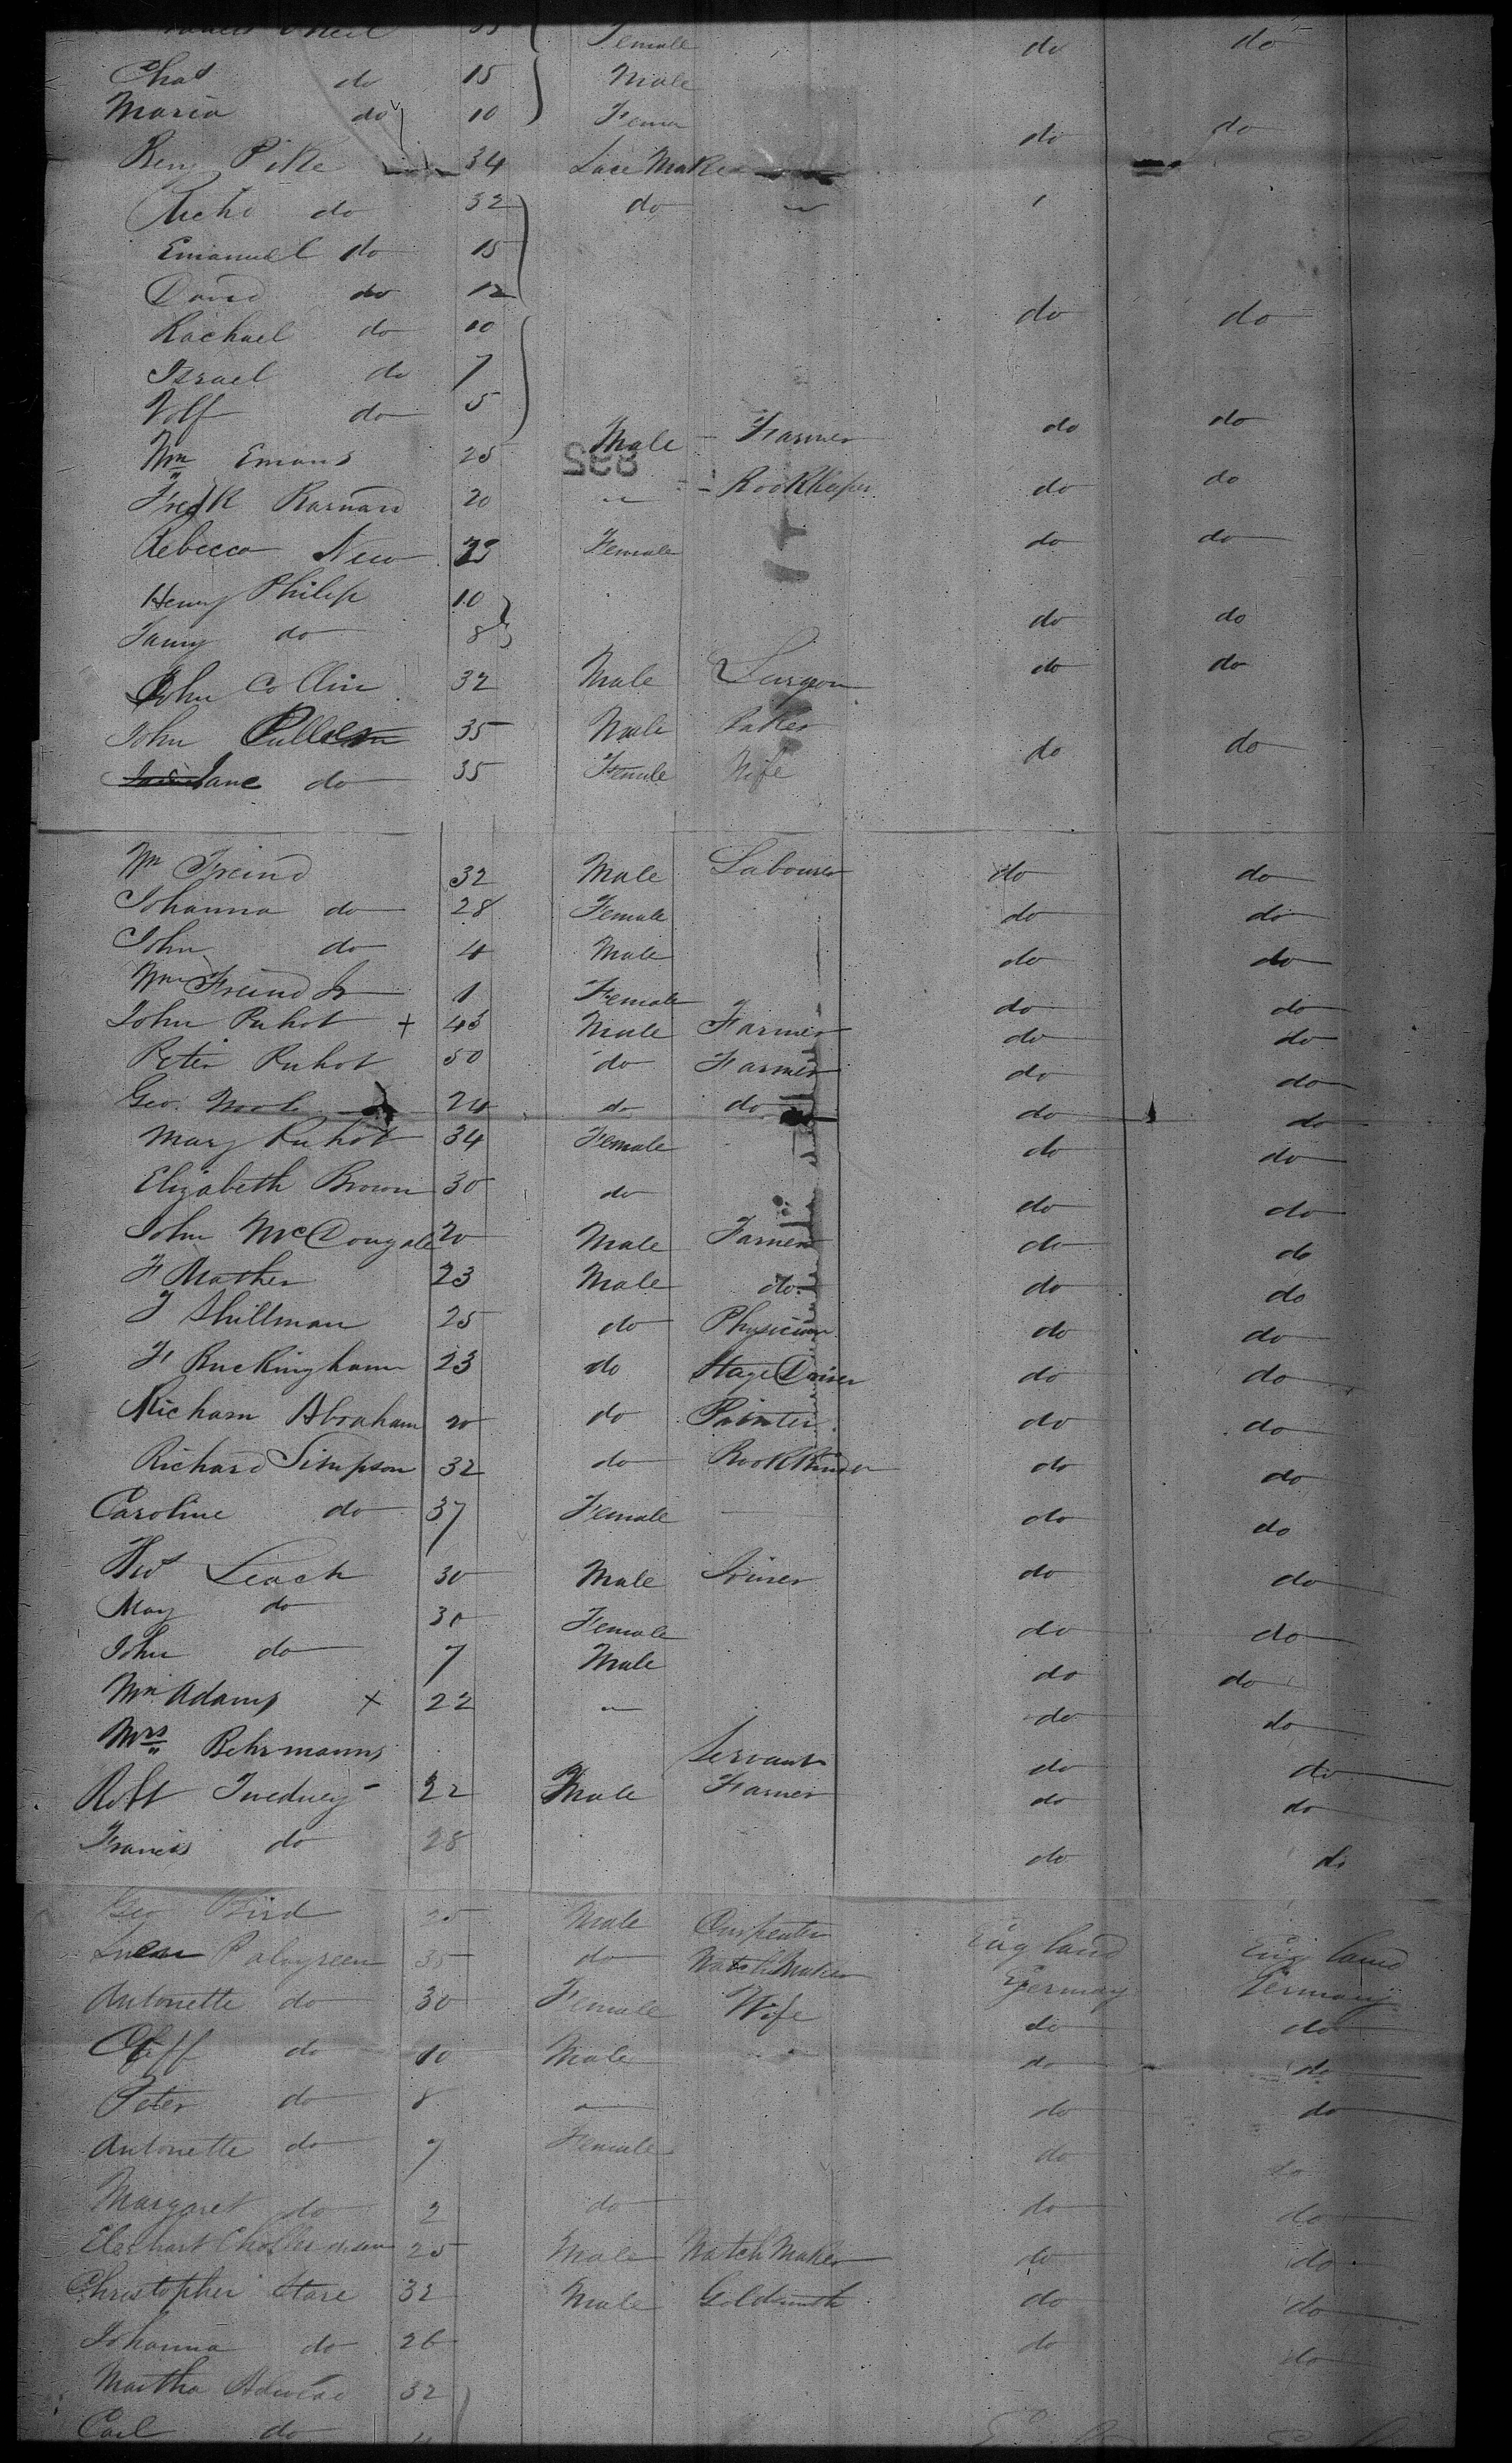 O'Neil 35 Female do do
Chas do 15 Male
Maria do 10 Fema
do do
Benj Pike 34 Lace Maker
Richd do 32 do
Emanuel do 15
David do 12
Rachael do 10 do do
Israel do 7
Wolf do 5
Wm Emans 25 Male Farmer do do
835
Fredk Barnard 20 Bookkeeper do do
Rebecca New Female do do
Henry Philip 10
Fanny do 8 do do
John Collin 32 Male Surgeon do do
John 35 Male Baker
Jane do 35 Female Wife do do
Wm Freind 32 Male Labourer do do
Johanna do 28 Female do do
John do 4 Male do do
Wm Freind Jr 1 Female do do
John Ruhot + 45 Male Farmer do do
Peter Ruhot 50 do Farmer do do
Geo. 24 do do do do
Mary Ruhot 34 Female do do
Elizabeth Brown 30 do do do
John McDougale 20 Male Farmer do do
F Mather 23 Male do do do
J Shillman 25 do Physician do do
F Buckingham 23 do Stage Driver do do
Richam Abraham 20 do Painter do do
Richard Simpson 32 do Book Binder do do
Caroline do 37 Female do do
Thos Leach 30 Male Joiner do do
May do 30 Female do do
John do 7 Male do do
Wm Adams x 22 do do
Mrs Behrmanns Servant do do
Robt Tweduey 22 Male Farmer do do
Francis do 28 do do
Geo Bird 25 Male Carpenter England England
Palmgreen 35 do Watch Maker Germany Germany
Antonette do 30 Female Wife do do
do 10 Male do do
Peter do 8 do do
Antonette do 7 Female do do
Margaret do 2 do do do
Eberhart 25 Male Watch Maker do do
Christopher Stare 32 Male Goldsmith do do
Johanna do 26 do do
Martha 32
Carl do